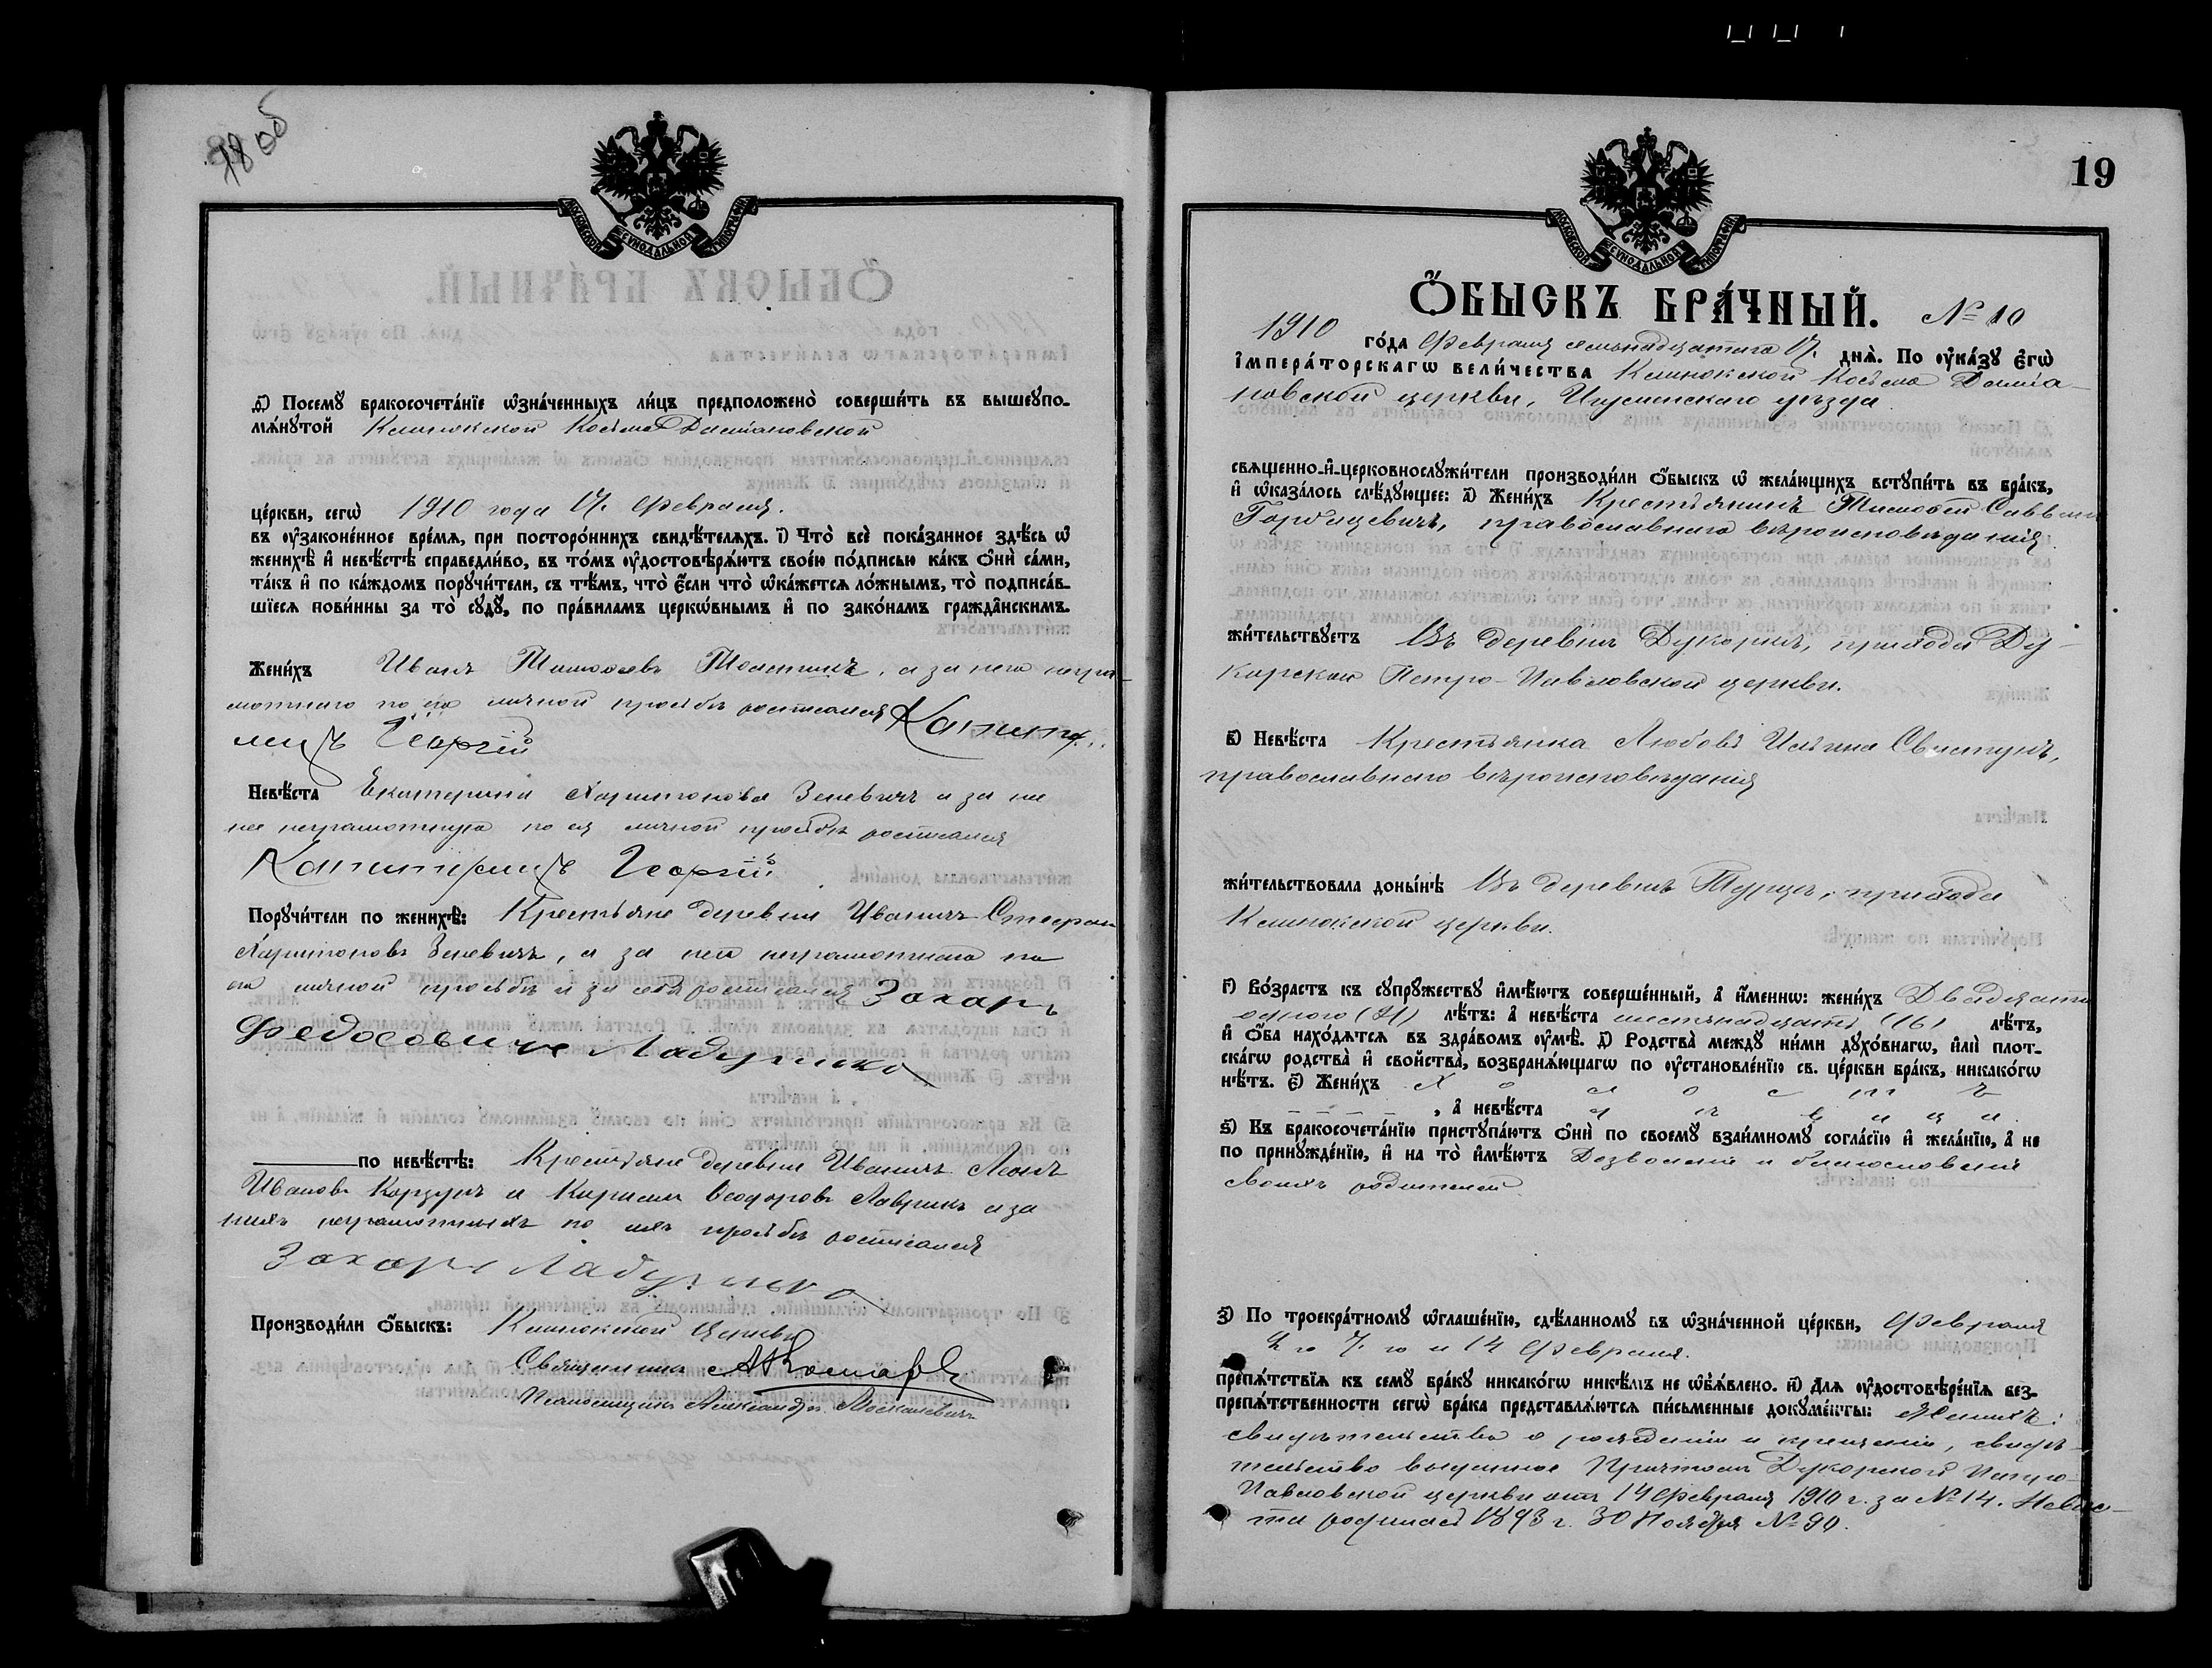 18 об
МОСКОВСКОЙ СѴНОДАЛЬНОЙ ТИПОГРАФІИ
ѳ҃) Посемꙋ бракосочета́нїе ѡ҆зна́ченныхъ ли́цъ предположено̀ соверши́ть въ вышеꙋпо-
мѧ́нꙋтой Клинокской Косьмо Даміановской
це́ркви, сегѡ̀ 1910 года 17. Февраля.
въ ѹ҆зако́ненное вре́мѧ, при посторо́ннихъ свидѣ́телѧхъ. і҃) Что̀ всѐ пока́занное здѣ́сь ѡ҆
женихѣ̀ и҆ невѣ́стѣ справедли́во, въ то́мъ ѹ҆достовѣрѧ́ютъ свое́ю по́дписью ка́къ ѻ҆нѝ са́ми,
та́къ и҆ по ка́ждомъ порꙋчи́тели, съ тѣ́мъ, что̀ є҆́сли что̀ ѡ҆ка́жетсѧ ло́жнымъ, то̀ подписа́в-
шїесѧ пови́нны за то̀ сꙋдꙋ̀, по пра́виламъ церкѡ́внымъ и҆ по зако́намъ гражда́нскимъ.
Жени́хъ Иванъ Тимоѳеевъ Толстикъ, а за него негра-
мотнаго по его личной просьбѣ росписался Капитр..
лецъ Георгій
Невѣ́ста Екатерина Харитонова Зеневичъ а за не
нее неграмотную по ея личной просьбѣ росписался
Георгій
Порꙋчи́тели по женихѣ̀: Крестьяне деревни Иваничъ Стефан
Харитоновъ Зеневичъ, а за него неграмотнаго по
его личной просьбѣ и за себя росписался Захаръ
Федосовичъ Ладутько
по невѣ́стѣ: Крестьяне деревни Иваничъ Леонъ
Ивановъ Корзунъ и Кирилъ Ѳеодоровъ Лаврикъ а за
нихъ неграмотныхъ по ихъ просьбѣ росписался
Захаръ Ладутько
Производи́ли ѻ҆́быскъ: Клинокской Церкви
Священникъ
Псаломщикъ Александръ Москалевичъ
19
МОСКОВСКОЙ СѴНОДАЛЬНОЙ ТИПОГРАФІИ
Ѻ҆́БЫСКЪ БРА́ЧНЫЙ. № 10
1910 го́да Февраля семьнадцатаго 17. днѧ̀. По ѹ҆ка́зꙋ є҆гѡ̀
І҆мпера́торскагѡ вели́чества Клинокской Косьмо Даміа-
новской церкви, Игуменскаго уѣзда.
свѧще́нно-и҆-церковнослꙋжи́тели производи́ли ѻ҆́быскъ ѡ҆ жела́ющихъ встꙋпи́ть въ бра́къ,
и҆ ѡ҆каза́лось слѣ́дꙋющее: а҃) Жени́хъ Крестьянинъ Тимоѳей Саввин
Горбацевичъ, православнаго вѣроисповѣданія
жи́тельствꙋетъ Въ деревнѣ Дукоркѣ, прихода Ду-
корской Петро-Павловской церкви.
в҃) Невѣ́ста Крестьянка Любовь Ильина Свистунъ,
православнаго вѣроисповѣданія
жи́тельствовала доны́нѣ Въ деревнѣ Турцѣ, прихода
Клинокской церкви.
г҃) Во́зрастъ къ сꙋпрꙋ́жествꙋ и҆мѣ́ютъ соверше́нный, а҆ и҆́меннѡ: жени́хъ Двадцати
одного (21) лѣ́тъ: а҆ невѣ́ста шестьнадцати (16) лѣ́тъ,
и҆ ѻ҆́ба нахо́дѧтсѧ въ здра́вомъ ѹ҆мѣ̀. д҃) Родства̀ междꙋ̀ ни́ми дꙋхо́внагѡ, и҆лѝ плот-
ска́гѡ родства̀ и҆ свойства̀, возбранѧ́ющагѡ по ѹ҆становле́нїю св. це́ркви бра́къ, никако́гѡ
нѣ́тъ. є҃) Жени́хъ х о л о с т ъ
, а҆ невѣ́ста д ѣ в и ц а.
ѕ҃) Къ бракосочета́нїю пристꙋпа́ютъ ѻ҆нѝ по своемꙋ̀ взаи́мномꙋ согла́сїю и҆ жела́нїю, а҆ не
по принꙋжде́нїю, и҆ на то̀ и҆мѣ́ютъ Дозволеніе и благословеніе
своихъ родителей
з҃) По троекра́тномꙋ ѡ҆глаше́нїю, сдѣ́ланномꙋ въ ѡ҆зна́ченной це́ркви, Февраля
2 го 7. го и 14 Февраля.
препѧ́тствїѧ къ семꙋ̀ бра́кꙋ никако́гѡ никѣ́мъ не ѡ҆б̾ѧ́влено. и҃) Длѧ̀ ѹ҆достовѣре́нїѧ без-
препѧ́тственности сегѡ̀ бра́ка представлѧ́ютсѧ пи́сьменные докꙋме́нты: Женихъ:
свидѣтельство о рожденіи и крещеніи, свидѣ-
тельство выданное Причтомъ Дукорской Петро-
Павловской церкви отъ 14 Февраля 1910 г. за № 14. Невѣс-
та родилась 1893 г. 30 Ноября № 90.